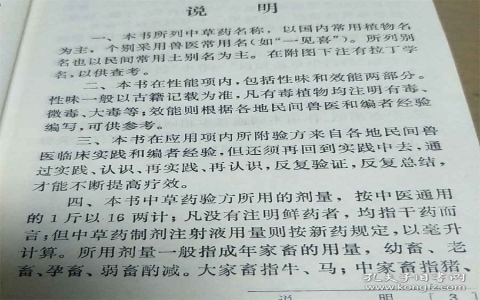 说 明
一、本书所列中草药名称，以国内常用植物名
为主，个别采用兽医常用名(如“一见喜”)。所列别
名也以民间常用土别名为主。在附图下注有拉丁学
名，以供查考。
二、本书在性能项内，包括性味和效能两部分。
性味一般以古籍记载为准，凡有毒植物均注明有毒、
微毒、大毒等；效能则根据各地民间兽医和编者经验
编写，可供参考。
三、本书在应用项内所附验方来自各地民间兽
医临床实践和编者经验，但还须再回到实践中去，通
过实践、认识、再实践、再认识，反复验证，反复总结，
才能不断提高疗效。
四、本书中草药验方所用的剂量，按中医通用
的1斤以16两计；凡没有注明鲜药者，均指干药而
言；但中草药制剂注射液用量则按新药规定，以毫升
计算。所用剂量一般指成年家畜的用量，幼畜、老
畜、孕畜、弱畜酌减。大家畜指牛、马；中家畜指猪、
说 明 3
孔夫子旧书网